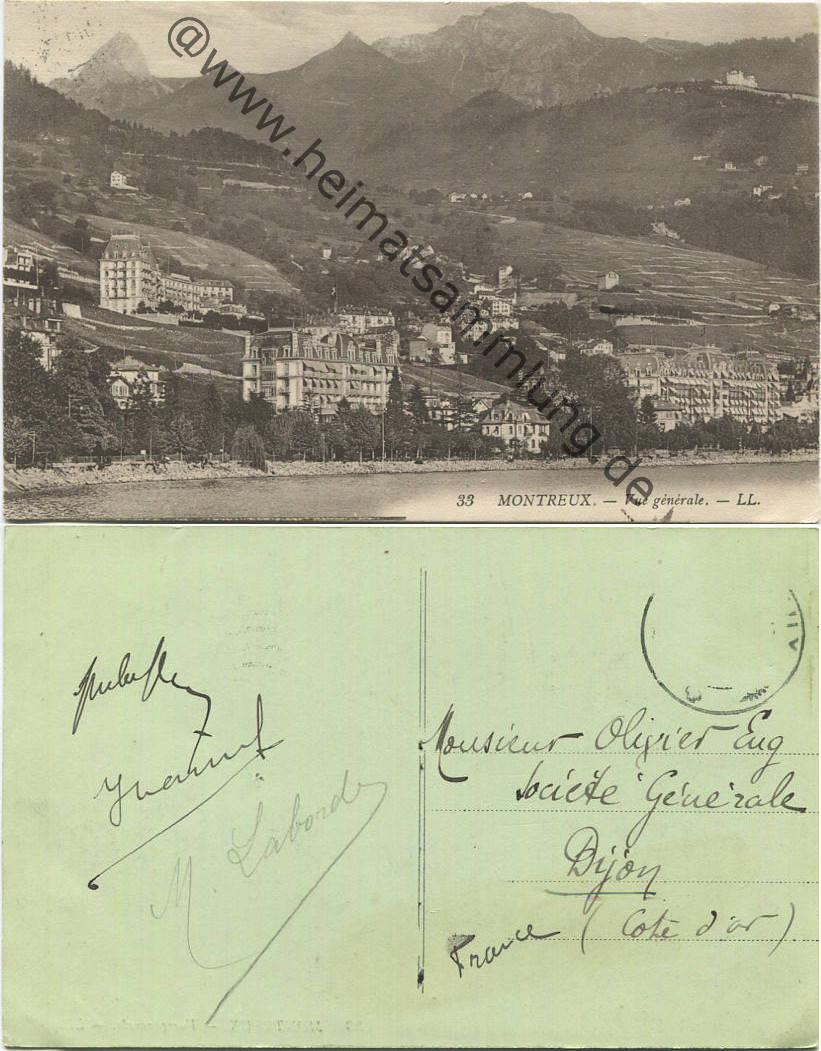 @www.heimatsammlung.de
33 MONTREUX. — Vue générale. — LL.
M. Laborde
Monsieur Olivier Eug
Société Générale
Dijon
France (Cote d'or)